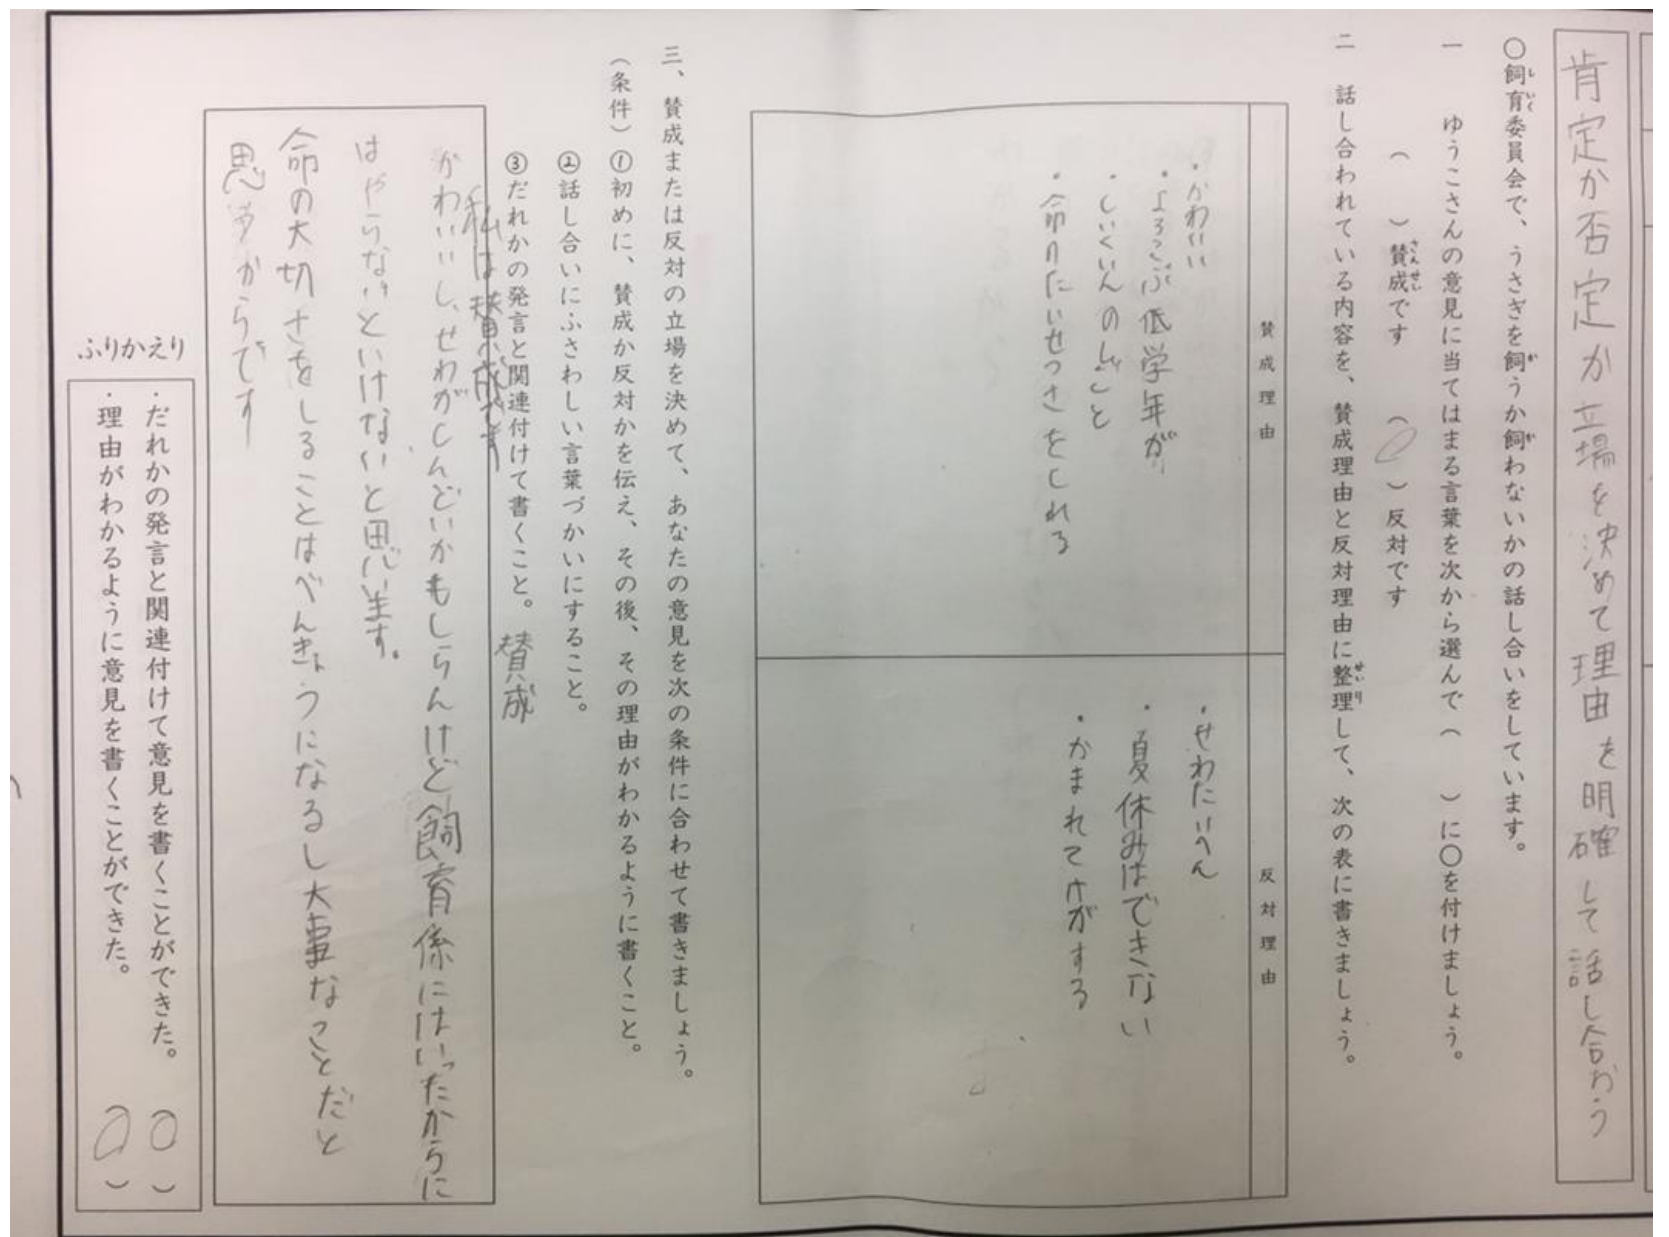 肯定か否定か立場を決めて理由を明確して話し合おう
○飼育委員会で、うさぎを飼うか飼わないかの話し合いをしています。
一　ゆうこさんの意見に当てはまる言葉を次から選んで（　）に○を付けましょう。
（　）賛成です　（○）反対です
二　話し合われている内容を、賛成理由と反対理由に整理して、次の表に書きましょう。
賛成理由
・かわいい
・よろこぶ低学年が
・しいくいんのしごと
・命のたいせつさをしれる
反対理由
・せわたいへん
・夏休みはできない
・かまれてけがする
三、賛成または反対の立場を決めて、あなたの意見を次の条件に合わせて書きましょう。
（条件）①初めに、賛成か反対かを伝え、その後、その理由がわかるように書くこと。
②話し合いにふさわしい言葉づかいにすること。
③だれかの発言と関連付けて書くこと。　賛成
私は賛成です
かわいいし、せわがしんどいかもしらんけど飼育係にはいったからに
はやらないといけないと思います。
命の大切さをしることはべんきょうになるし大事なことだと
思うからです
ふりかえり
・だれかの発言と関連付けて意見を書くことができた。（○）
・理由がわかるように意見を書くことができた。（○）